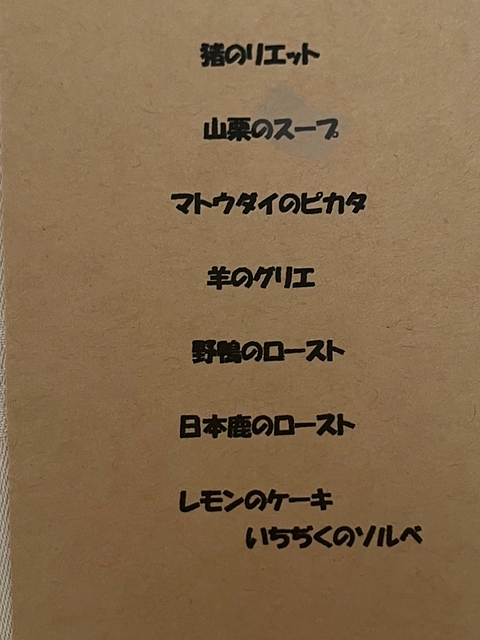 猪のリエット
山栗のスープ
マトウダイのピカタ
羊のグリエ
野鴨のロースト
日本鹿のロースト
レモンのケーキ
いちぢくのソルベ